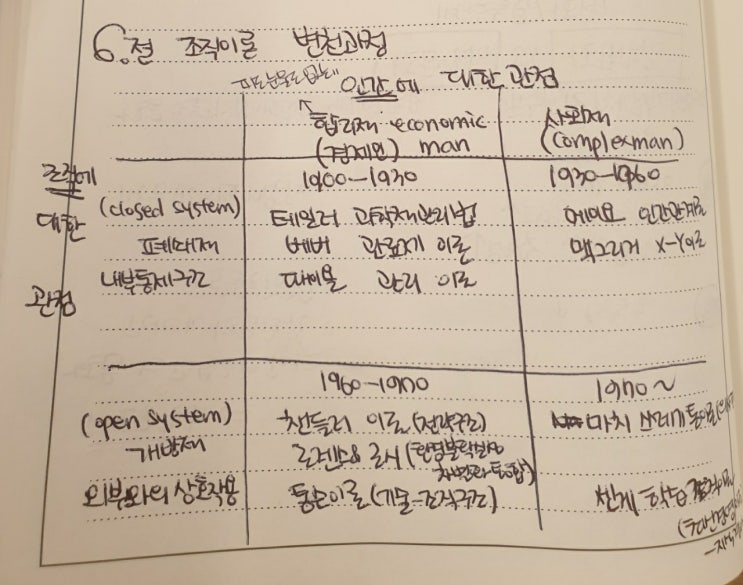 6.절 조직이론 변천과정
피도 눈물도 없는 인간에 대한 관점
합리적 economic 사회적
(경제인) man (complexman)
조직에 1900-1930 1930-1960
대한 (closed system) 테일러 과학적관리법 메이요 인간관계론
폐쇄적 베버 관료제 이론 맥그리거 X-Y이론
관점 내부통제구조 페이욜 관리 이론
1960-1970 1970~
(open system) 챈들러 이론 (전략구조) 마치 쓰레기통이론
개방적 로렌스&로시 (환경불확실성
차별화 통합)
외부와의 상호작용 톰슨이론 (기술-조직구조) 센게 학습